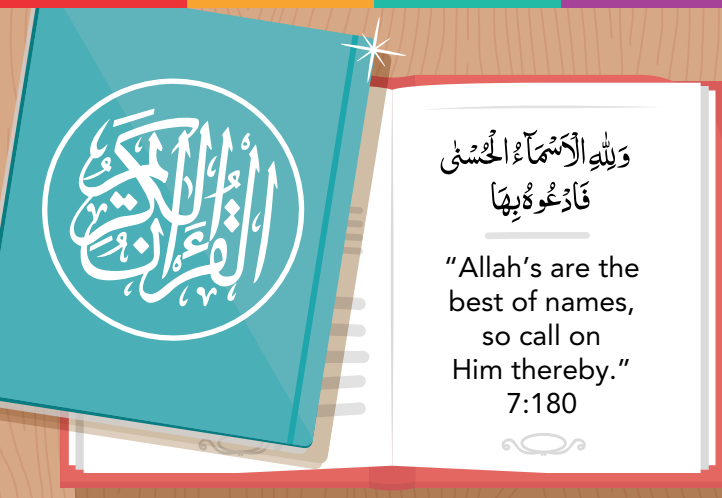 القرآن الكريم
وَلِلّٰهِ الْاَسْمَآءُ الْحُسْنٰى
فَادْعُوْهُ بِهَا
“Allah’s are the
best of names,
so call on
Him thereby.”
7:180